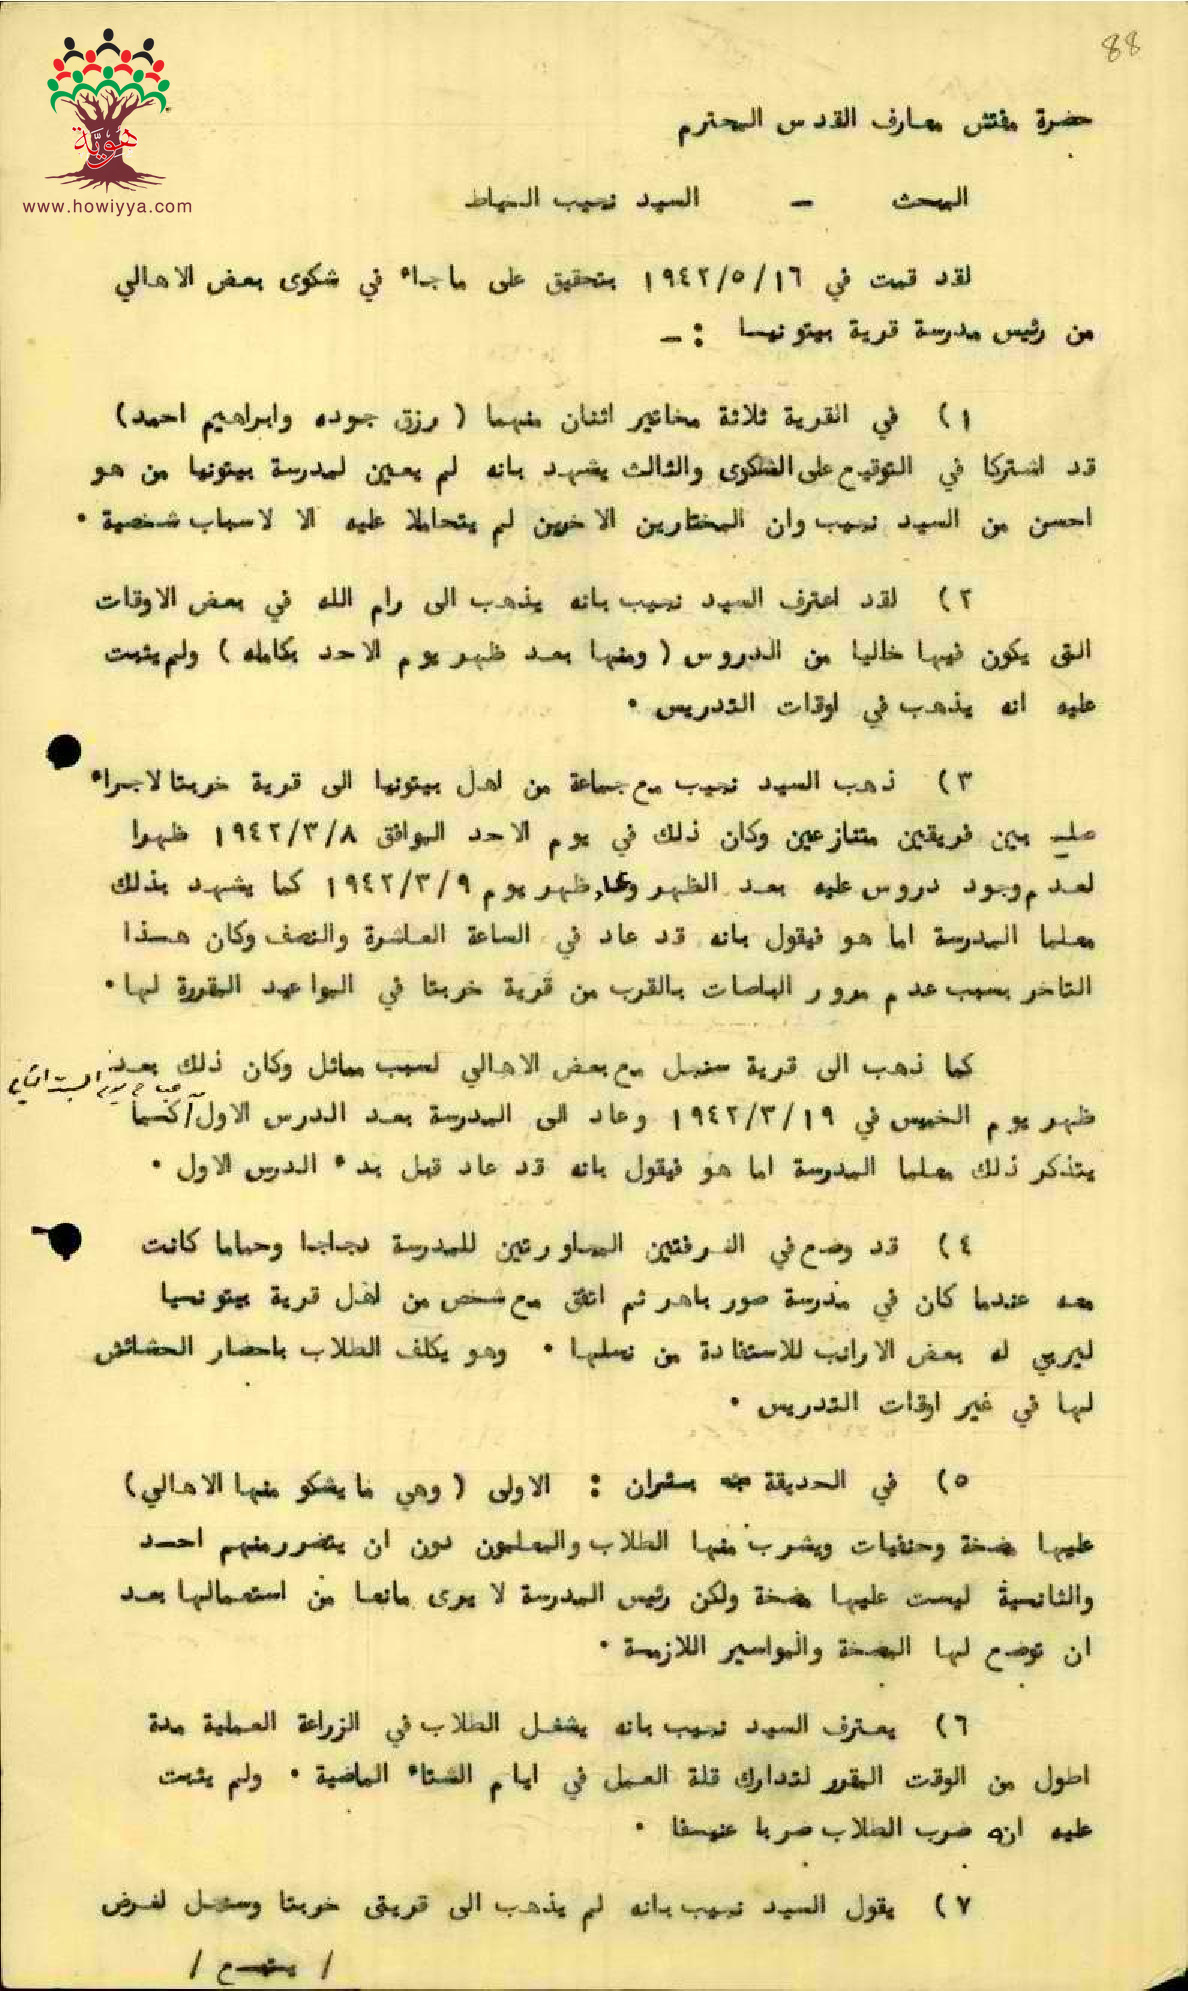 88
هوية
www.howiyya.com
حضرة مفتش معارف القدس المحترم
البحث - السيد نجيب الخياط
لقد قمت في ١٩٤٢/٥/١٦ بتحقيق على ماجاء في شكوى بعض الاهالي
من رئيس مدرسة قرية بيتونيا :-
١) في القرية ثلاثة مخاتير اثنان منهما ( رزق جوده وابراهيم احمد)
قد اشتركا في التوقيع على الشكوى والثالث يشهد بانه لم يعين لمدرسة بيتونيا من هو
احسن من السيد نجيب وان المختارين الاخرين لم يتحاملا عليه الا لاسباب شخصية .
٢) لقد اعترف السيد نجيب بانه يذهب الى رام الله في بعض الاوقات
التى يكون فيها خاليا من الدروس ( ومنها بعد ظهر يوم الاحد بكامله ) ولم يثبت
عليه انه يذهب في اوقات التدريس .
٣) ذهب السيد نجيب مع جماعة من اهل بيتونيا الى قرية خربتا لاجراء
صلح بين فريقين متنازعين وكان ذلك في يوم الاحد الموافق ١٩٤٢/٣/٨ ظهرا
لعدم وجود دروس عليه بعد الظهر وعاد ظهر يوم ١٩٤٢/٣/٩ كما يشهد بذلك
معلما المدرسة اما هو فيقول بانه قد عاد في الساعة العاشرة والنصف وكان هذا
التاخر بسبب عدم مرور الباصات بالقرب من قرية خربتا في المواعيد المقررة لها.
كما ذهب الى قرية سنجل مع بعض الاهالي لسبب مماثل وكان ذلك بعد
صباح يوم السبت التالي
ظهر يوم الخميس في ١٩٤٢/٣/١٩ وعاد الى المدرسة بعد الدرس الاول / كما
يتذكر ذلك معلما المدرسة اما هو فيقول بانه قد عاد قبل بدء الدرس الاول .
٤) قد وضع في الغرفتين المجاورتين للمدرسة دجاجا وحماما كانت
معه عندما كان في مدرسة صور باهر ثم اتفق مع شخص من اهل قرية بيتونيا
ليربي له بعض الارانب للاستفادة من نسلها . وهو يكلف الطلاب باحضار الحشائش
لها في غير اوقات التدريس .
٥) في الحديقة بئران : الاولى ( وهي ما يشكو منها الاهالي)
عليها مضخة وحنفيات ويشرب منها الطلاب والمعلمون دون ان يتضرر منهم احد
والثانية ليست عليها مضخة ولكن رئيس المدرسة لا يرى مانعا من استعمالها بعد
ان توضع لها المضخة والمواسير اللازمة .
٦) يعترف السيد نجيب بانه يشغل الطلاب في الزراعة العملية مدة
اطول من الوقت المقرر لتدارك قلة العمل في ايام الشتاء الماضية . ولم يثبت
عليه انه ضرب الطلاب ضربا عنيفا .
٧) يقول السيد نجيب بانه لم يذهب الى قريتى خربتا وسنجل لغرض
/ يتبع /